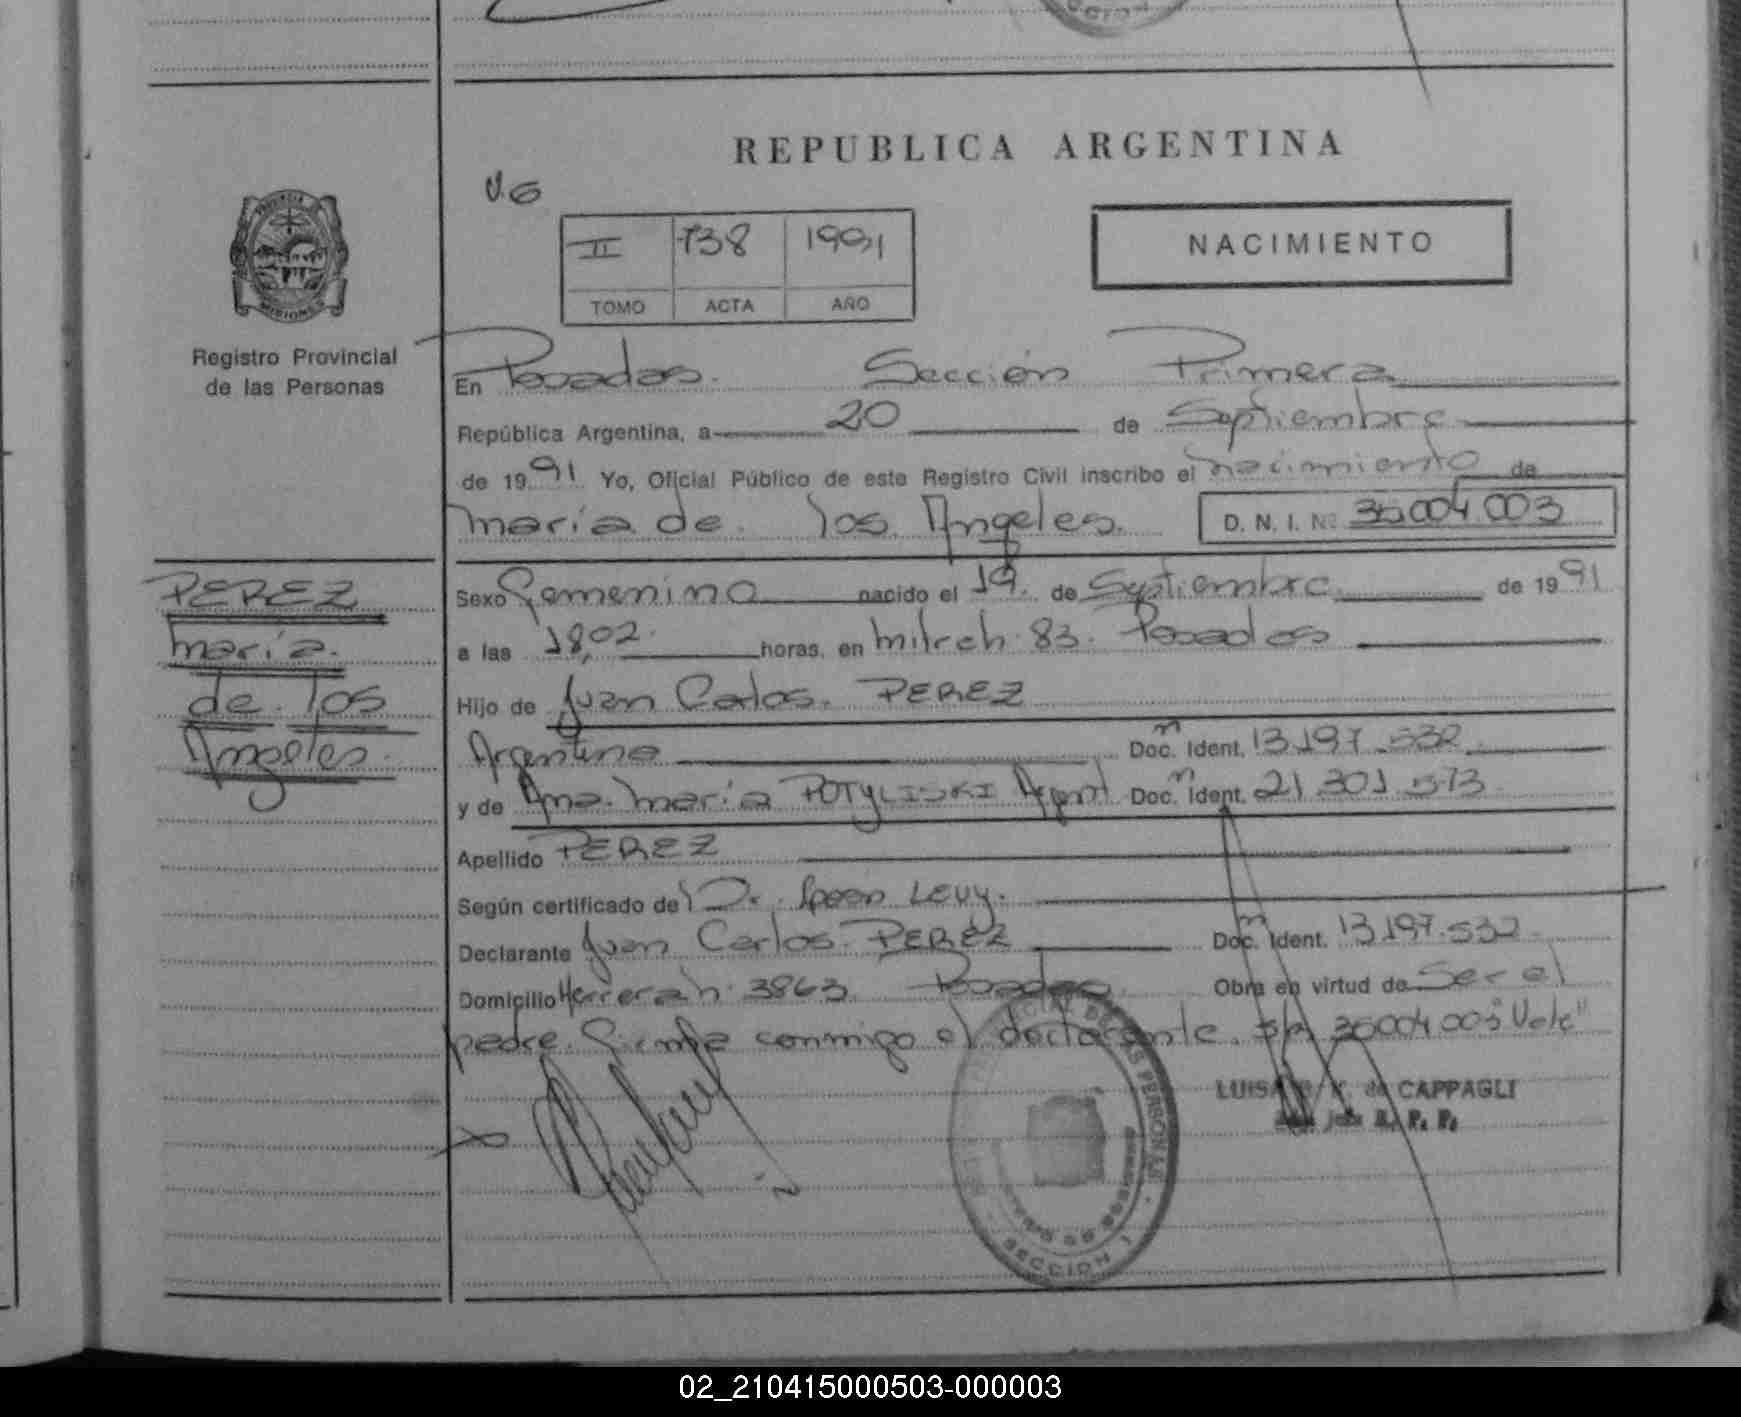 REPUBLICA ARGENTINA
V.G
II 738 1991
TOMO ACTA AÑO
NACIMIENTO
PROVINCIA
MISIONES
Registro Provincial
de las Personas
En Posadas. Sección Primera
República Argentina, a 20 de Septiembre
de 1991 Yo, Oficial Público de este Registro Civil inscribo el nacimiento de
maría de los Angeles. D. N. I. Nº 36004.003
PEREZ
maría.
de los
Angeles.
Sexo Femenino nacido el 19. de Septiembre de 1991
a las 18,02 horas, en mitreh 83. Posadas
Hijo de Juan Carlos. PEREZ
Argentino Doc. Ident. 13.197.532
y de Ana. maría POTYLISKI Argent Doc. Ident. 21.301.573
Apellido PEREZ
Según certificado de Dr. LEVY.
Declarante Juan Carlos. PEREZ Doc. Ident. 13.197.532
Domicilio Herrerah 3863. Posadas Obra en virtud de Ser el
padre. Firma conmigo el declarante. 36004.003 "Vale"
LUISA de CAPPAGLI
R. P. P.
DE LAS PERSONAS
SECCION 1
02_210415000503-000003